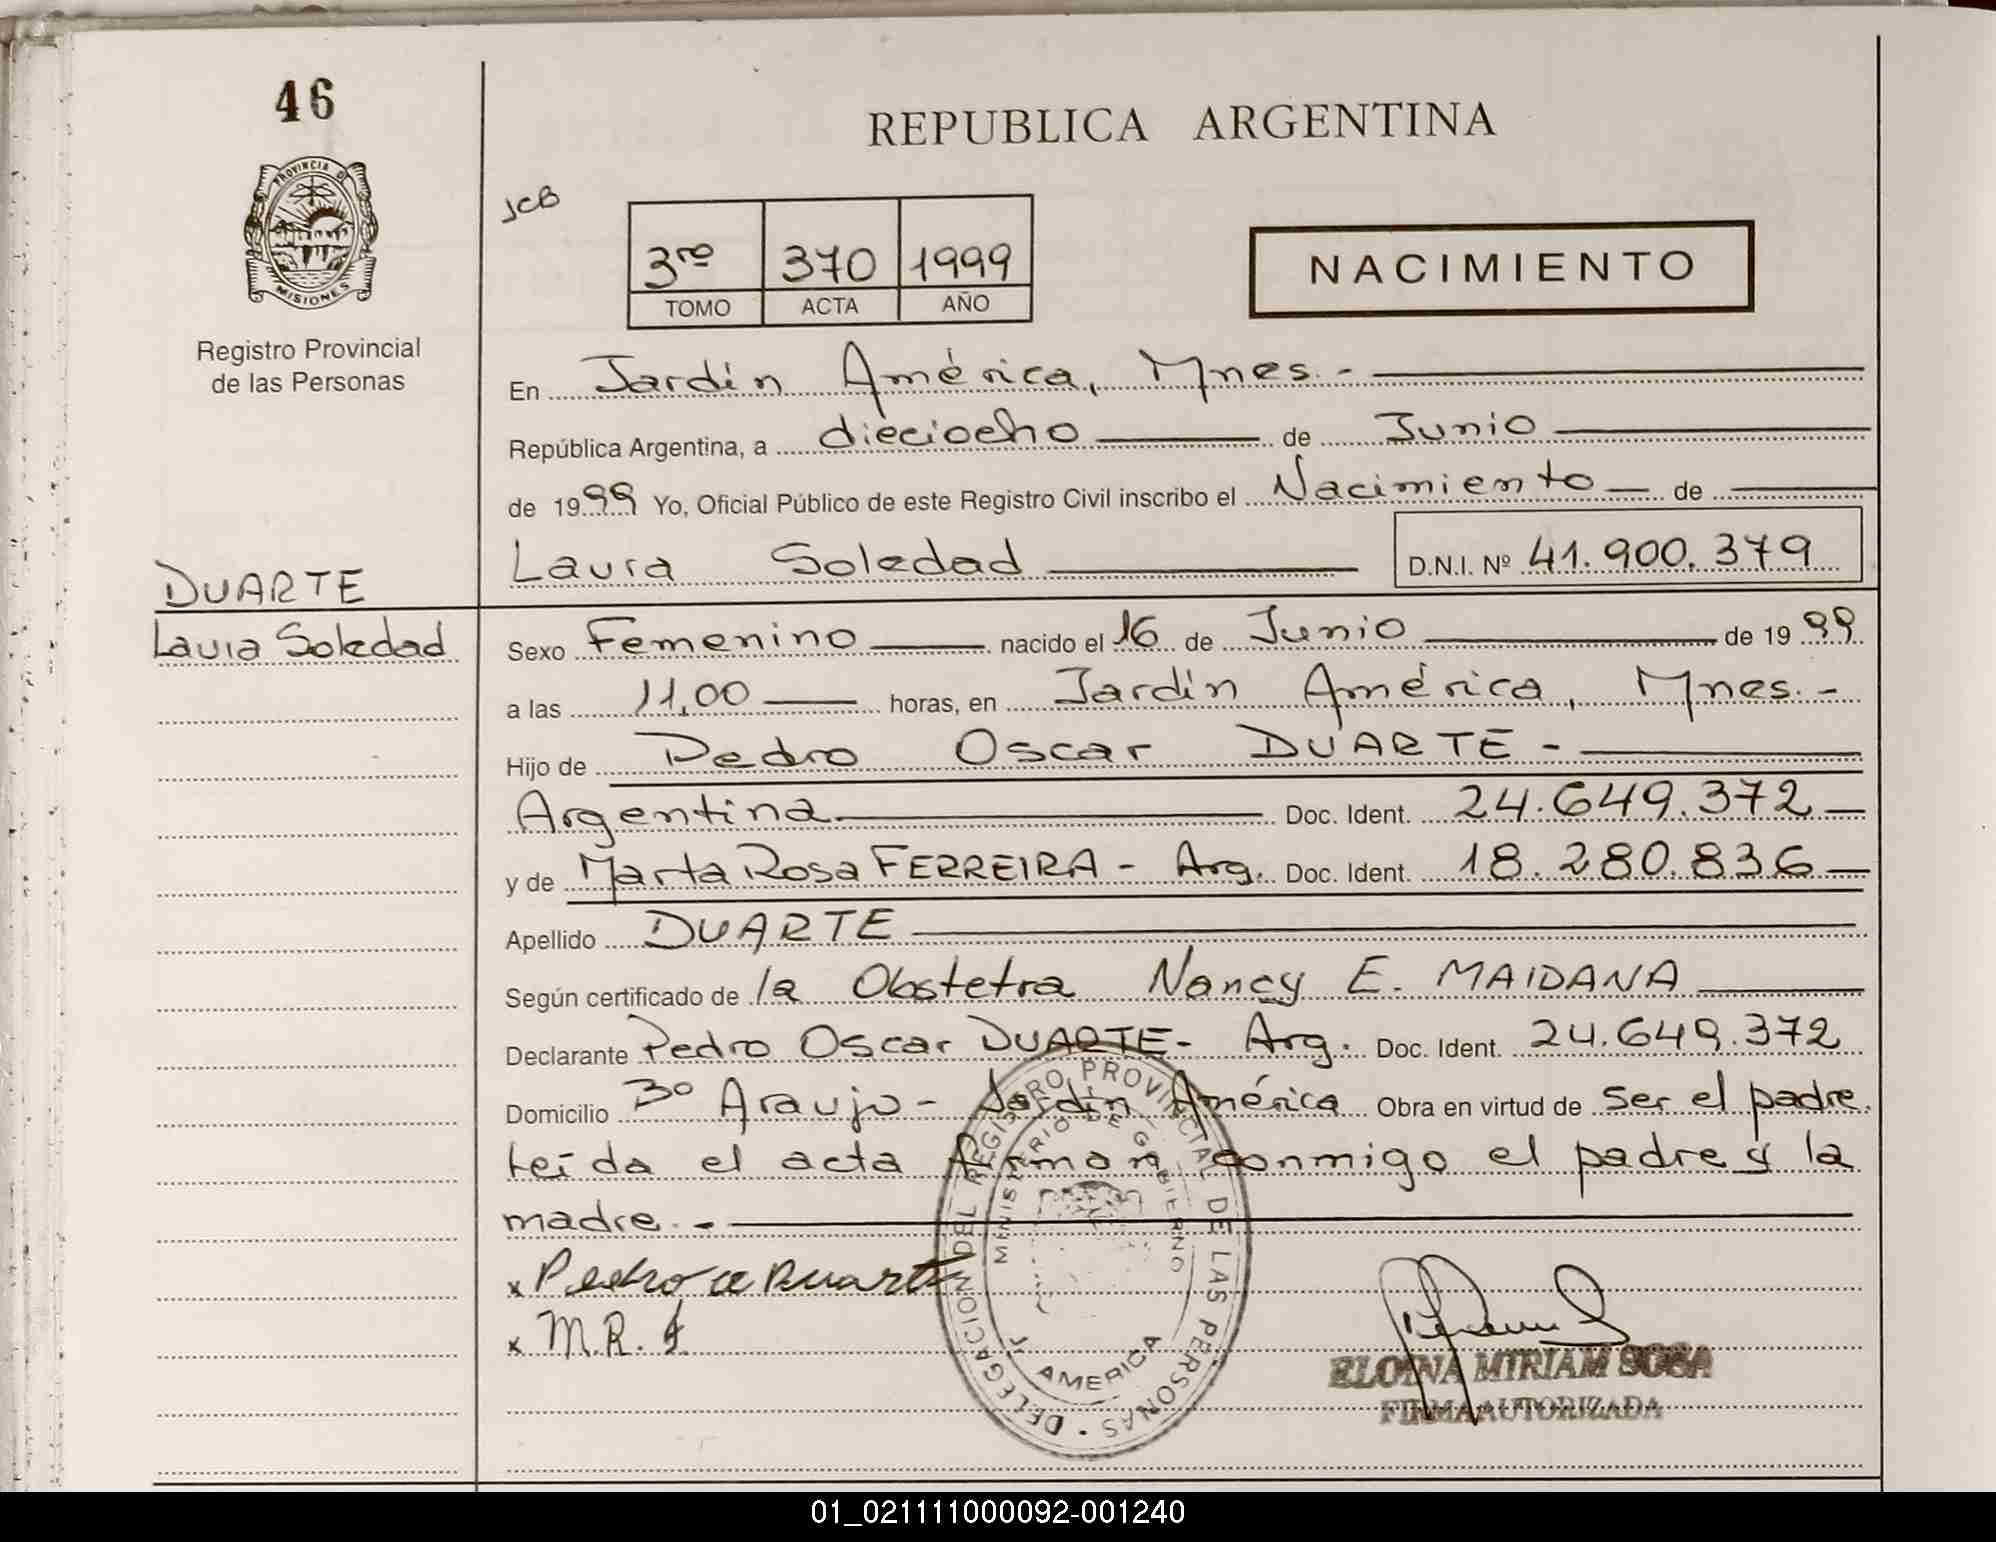 46
PROVINCIA DE
MISIONES
Registro Provincial
de las Personas
REPUBLICA ARGENTINA
JCB
3ro 370 1999
TOMO ACTA AÑO
NACIMIENTO
En Jardín América, Mnes.-
República Argentina, a dieciocho de Junio
de 1999 Yo, Oficial Público de este Registro Civil inscribo el Nacimiento de
Laura Soledad D.N.I. Nº 41.900.379
DUARTE
Laura Soledad
Sexo Femenino nacido el 16 de Junio de 1999
a las 11,00 horas, en Jardín América, Mnes.-
Hijo de Pedro Oscar DUARTE -
Argentina Doc. Ident. 24.649.372
y de Marta Rosa FERREIRA - Arg. Doc. Ident. 18.280.836
Apellido DUARTE
Según certificado de la Obstetra Nancy E. MAIDANA
Declarante Pedro Oscar DUARTE- Arg. Doc. Ident. 24.649.372
Domicilio Bº Araujo - Jardín América Obra en virtud de ser el padre.
Leída el acta firman conmigo el padre y la
madre.-
x Pedro O Duarte
x M.R.F
DELEGACION DEL REGISTRO PROVINCIAL DE LAS PERSONAS
MINISTERIO DE GOBIERNO
J. AMERICA
ELOINA MIRIAM SOSA
FIRMA AUTORIZADA
01_021111000092-001240